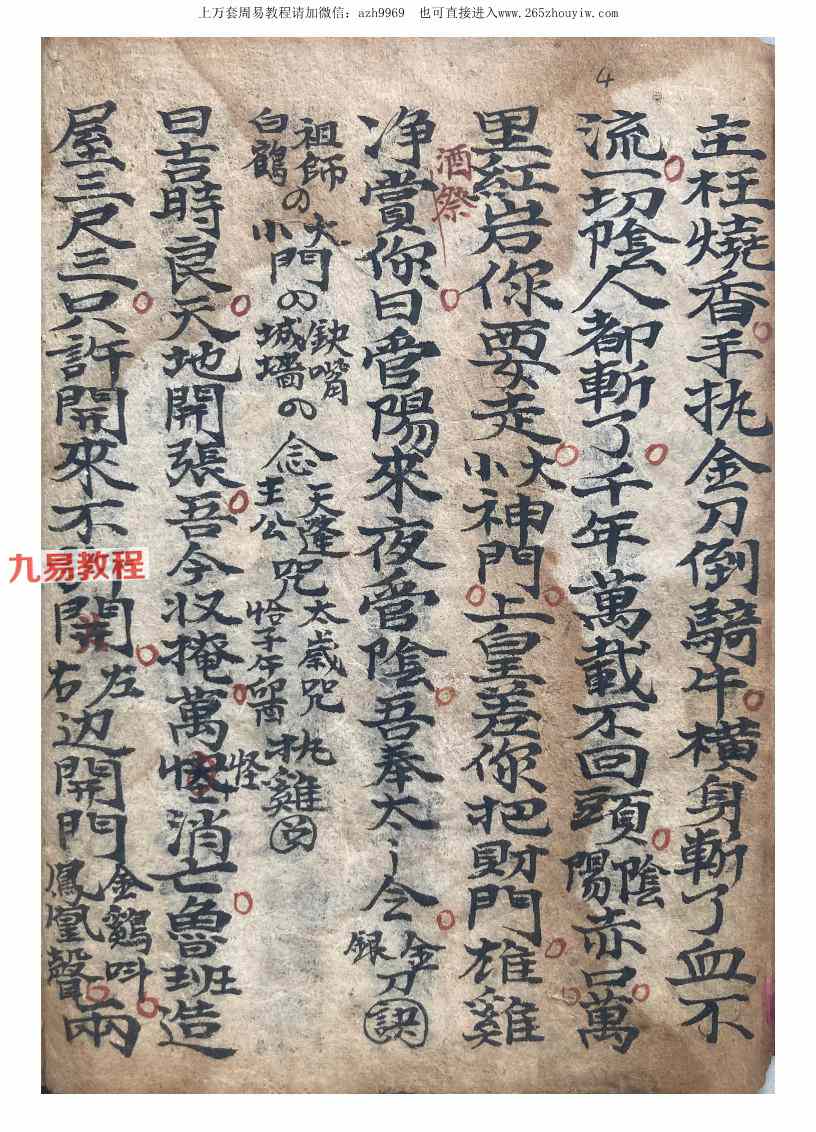 上万套周易教程请加微信：azh9969 也可直接进入www.265zhouyiw.com
4
主枉燒香手执金刀倒騎牛橫身斬了血不
流一切陰人都斬了千年萬載不回頭陰陽赤口萬
里紅岩你要走大小神門上皇差你把財門雄雞
酒祭
净賞你日管陽來夜管陰吾奉太令金銀刀訣
祖師白鶴の大小門の缺嘴城墻の念天蓬主公咒太歲咒恰子午留执雞
曰吉時良天地開張吾今收掩萬怪消亡魯班造
屋三尺三只許開來不開左右边開門金鷄叫鳳凰聲兩
九易教程